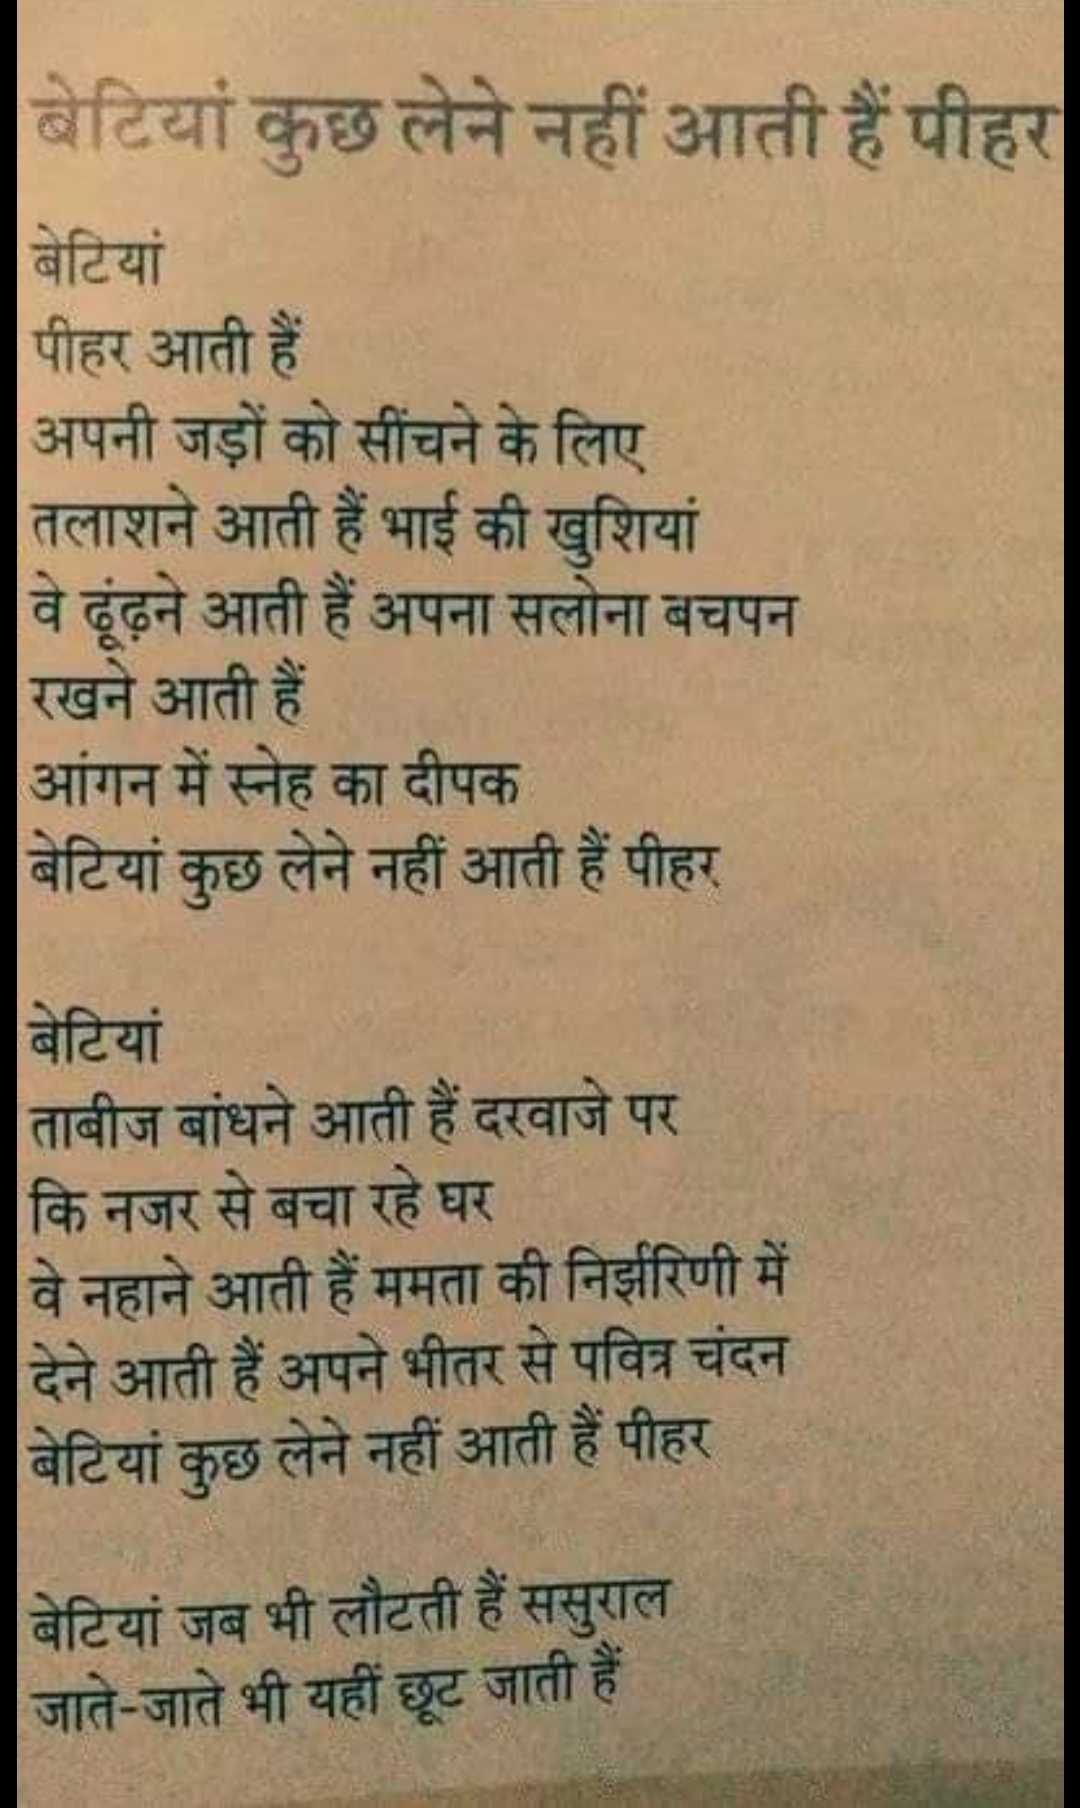 बेटियां कुछ लेने नहीं आती हैं पीहर
बेटियां
पीहर आती हैं
अपनी जड़ों को सींचने के लिए
तलाशने आती हैं भाई की खुशियां
वे ढूंढ़ने आती हैं अपना सलोना बचपन
रखने आती हैं
आंगन में स्नेह का दीपक
बेटियां कुछ लेने नहीं आती हैं पीहर
बेटियां
ताबीज बांधने आती हैं दरवाजे पर
कि नजर से बचा रहे घर
वे नहाने आती हैं ममता की निर्झरिणी में
देने आती हैं अपने भीतर से पवित्र चंदन
बेटियां कुछ लेने नहीं आती हैं पीहर
बेटियां जब भी लौटती हैं ससुराल
जाते-जाते भी यहीं छूट जाती हैं